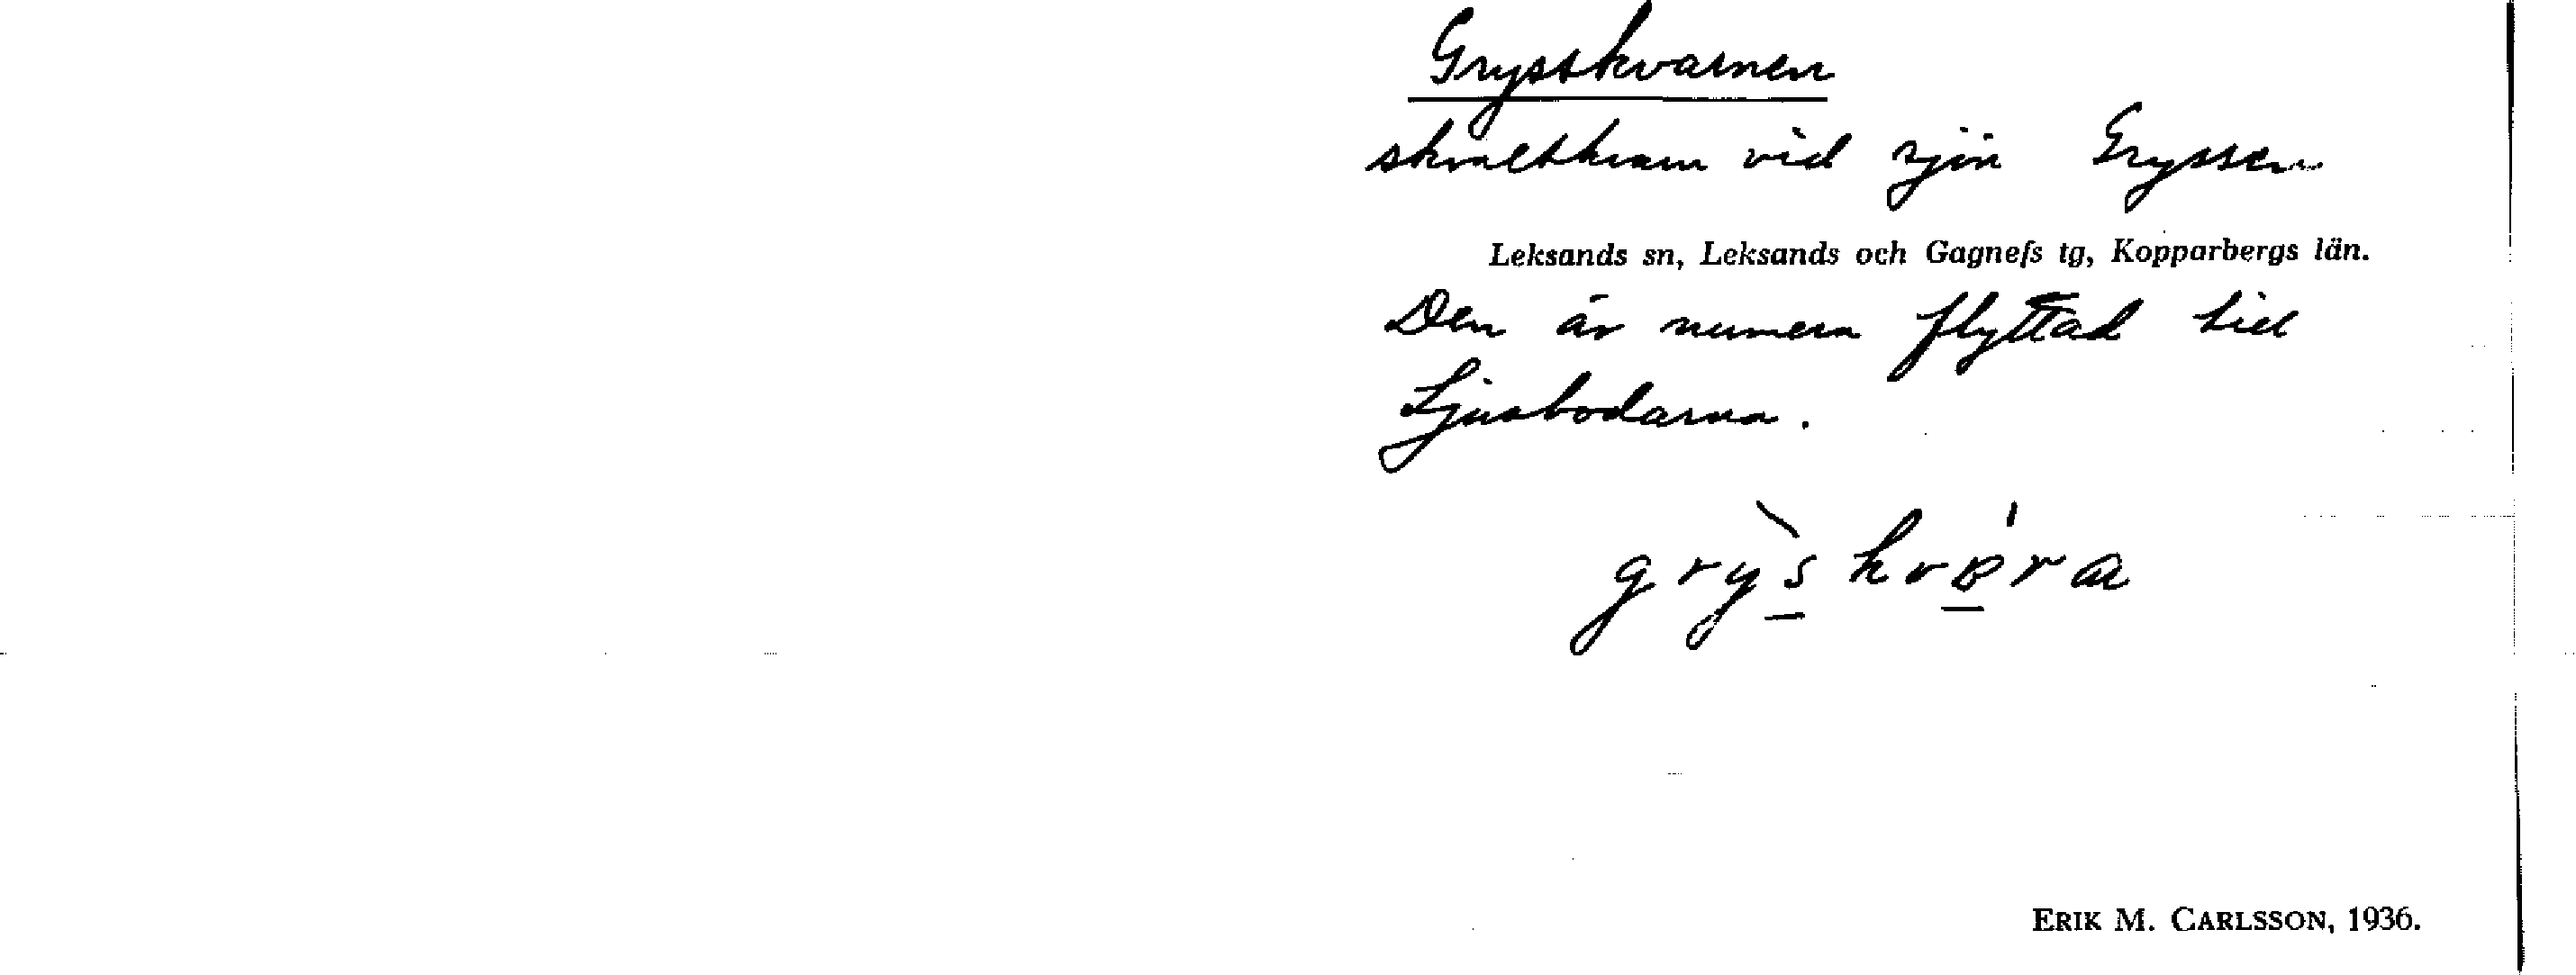 Grysskvarnen
skvaltkvarn vid sjön Gryssen
Leksands sn, Leksands och Gagnefs tg, Kopparbergs län.
Den är numera flyttad till
Ljusbodarna.
ERIK M. CARLSSON, 1936.